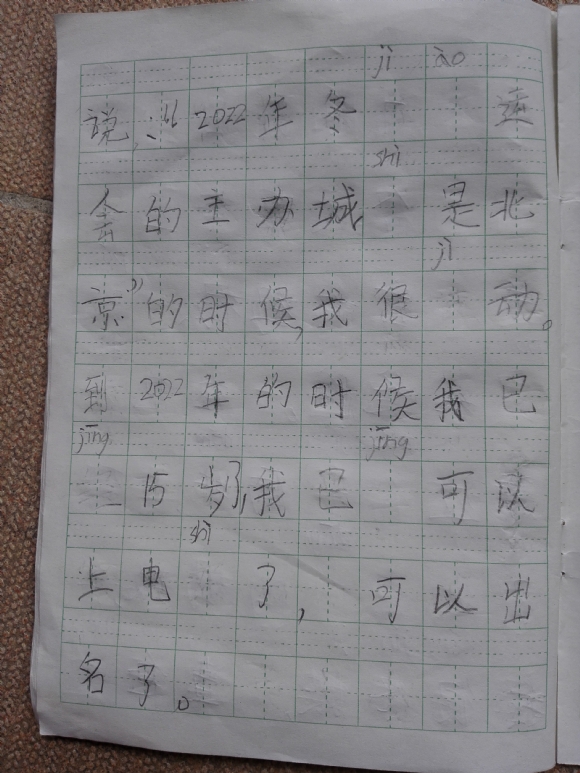 jì ào
说:“2022年冬 运
shì
会的主办城 是北
jī
京”的时候,我很 动。
到2022年的时候我已
jīng jīng
15岁了,我已 可以
shì
上电 了,可以出
名了。